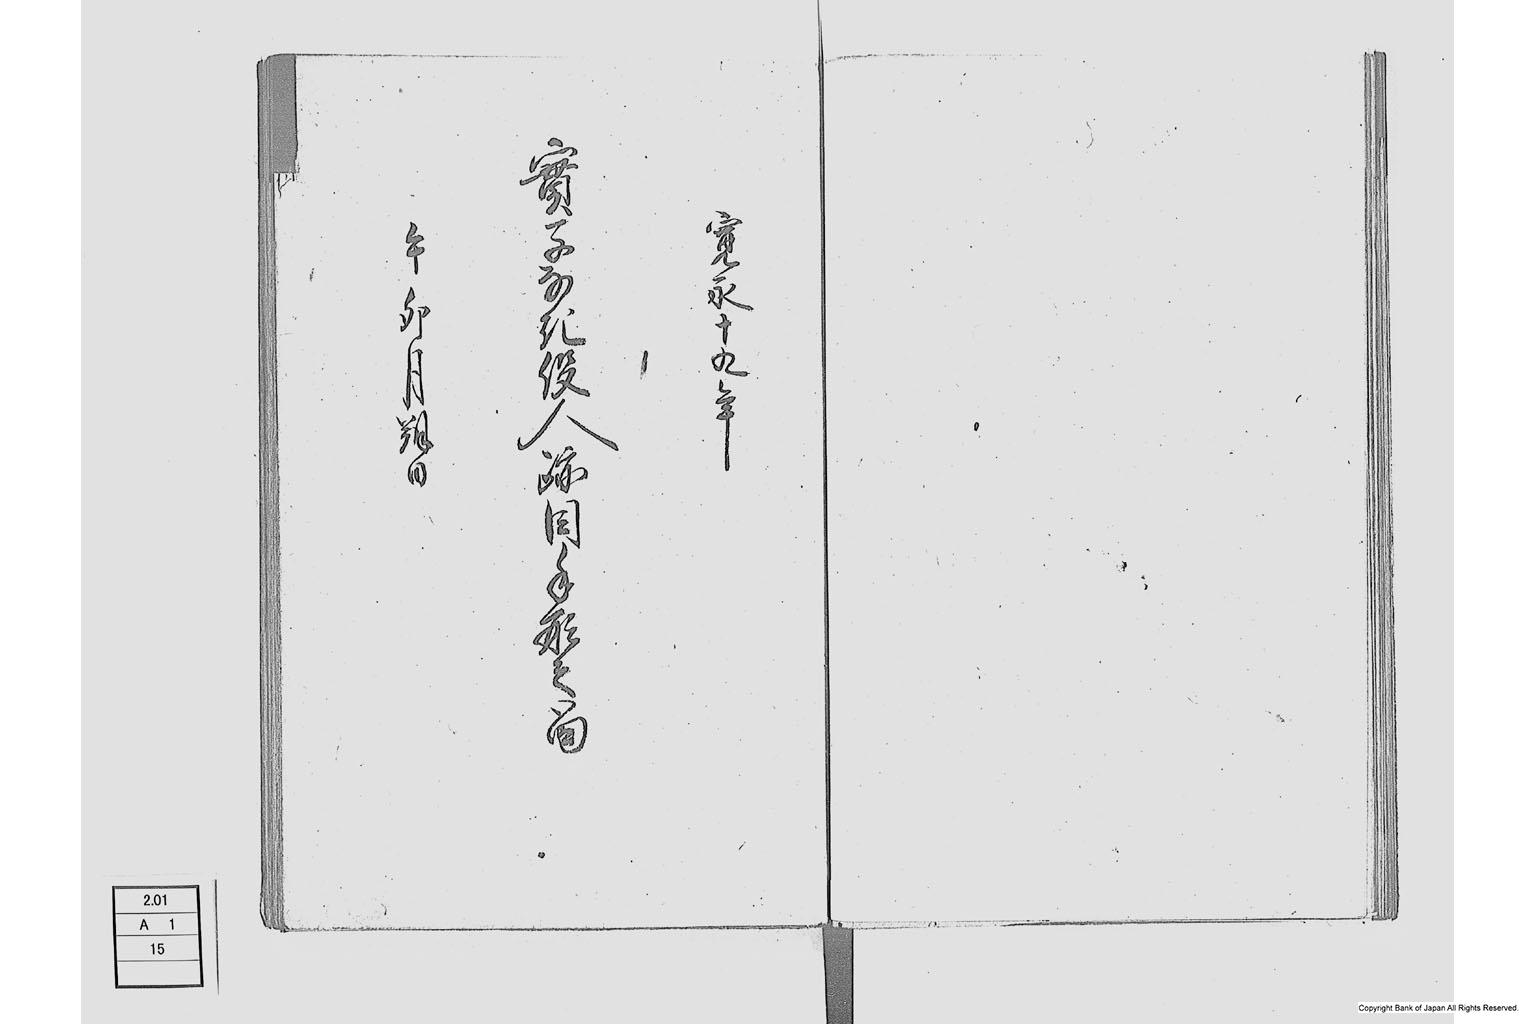 寛永十九年
實子別紀役人跡目手形之留
午卯月朔日
2.01
A 1
15
Copyright Bank of Japan All Rights Reserved.